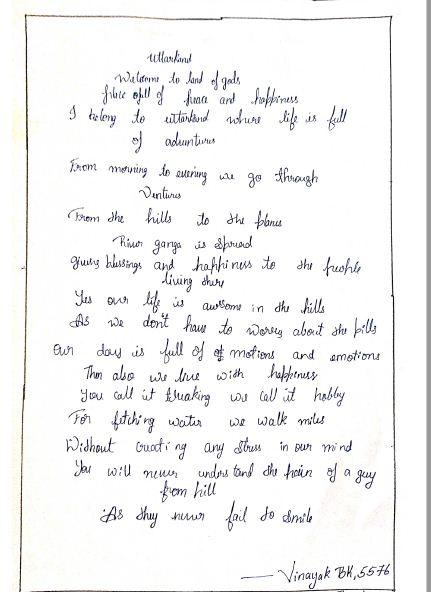 Uttarkand
Welcome to land of gods
place full of peace and happiness
I belong to uttarkand where life is full
of adventures
From morning to evening we go through
Ventures
From the hills to the planes
River ganga is spread
giving blessings and happiness to the people
living there
Yes our life is awsome in the hills
As we don't have to worry about the bills
Our day is full of motions and emotions
Then also we live with happiness
You call it treaking we call it hobby
For fetching water we walk miles
Without creating any stress in our mind
You will never understand the pain of a guy
from hill
As they never fail to smile
— Vinayak BK, 5576